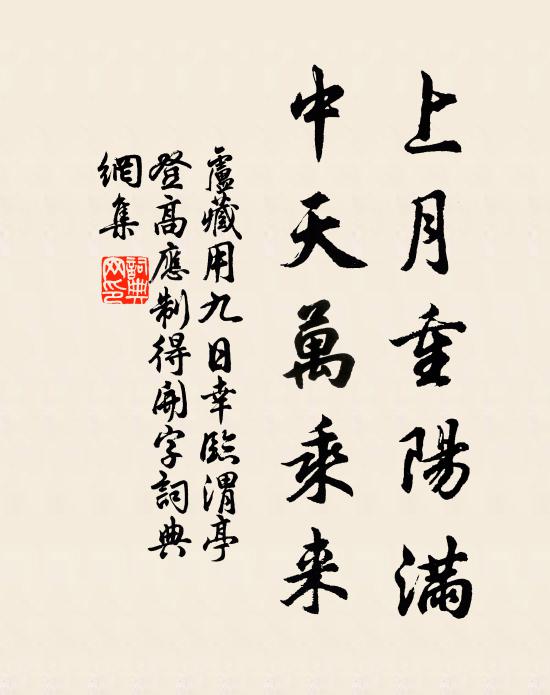 上月重陽滿
中天萬乘来
盧藏用九日幸臨渭亭
登高應制得開字詞典
網集
詞典
网印